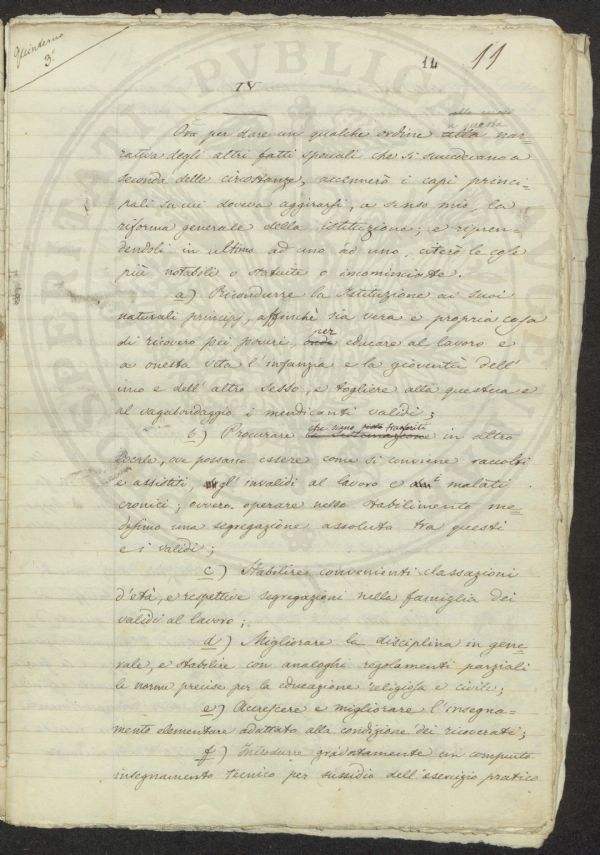 Quinterno
3°
14 11
IV
alla quasi
a questa
Ora per dare un qualche ordine alla nar-
rativa degli altri fatti speciali che si succedevano a
seconda delle circostanze, accennerò i capi princi-
pali su cui doveva aggirarsi, a senso mio, la
riforma generale della istituzione; e ripren-
dendoli in ultimo ad uno ad uno, citerò le cose
più notabili o statuite o incominciate.
a) Ricondurre la Istituzione ai suoi
naturali principj, affinchè sia vera e propria casa
per
di ricovero pei poveri, onde educare al lavoro e
a onesta vita l'infanzia e la gioventù dell'
uno e dell'altro sesso, e togliere alla questua e
al vagabondaggio i mendicanti validi;
che siano trasferiti
b) Procurare in altro
locale, ove possano essere come si conviene raccolti
e assistiti, gl'invalidi al lavoro e malati
cronici; ovvero operare nello stabilimento me-
desimo una segregazione assoluta tra questi
e i validi;
c) Stabilire convenienti classazioni
d'età, e respettive segregazioni nella famiglia dei
validi al lavoro;
d) Migliorare la disciplina in gene-
rale, e stabilire con analoghi regolamenti parziali
le norme precise per la educazione religiosa e civile;
e) Accrescere e migliorare l'insegna-
mento elementare adattato alla condizione dei ricoverati;
f) Introdurre gradatamente un compiuto
insegnamento tecnico per sussidio dell'esercizio pratico